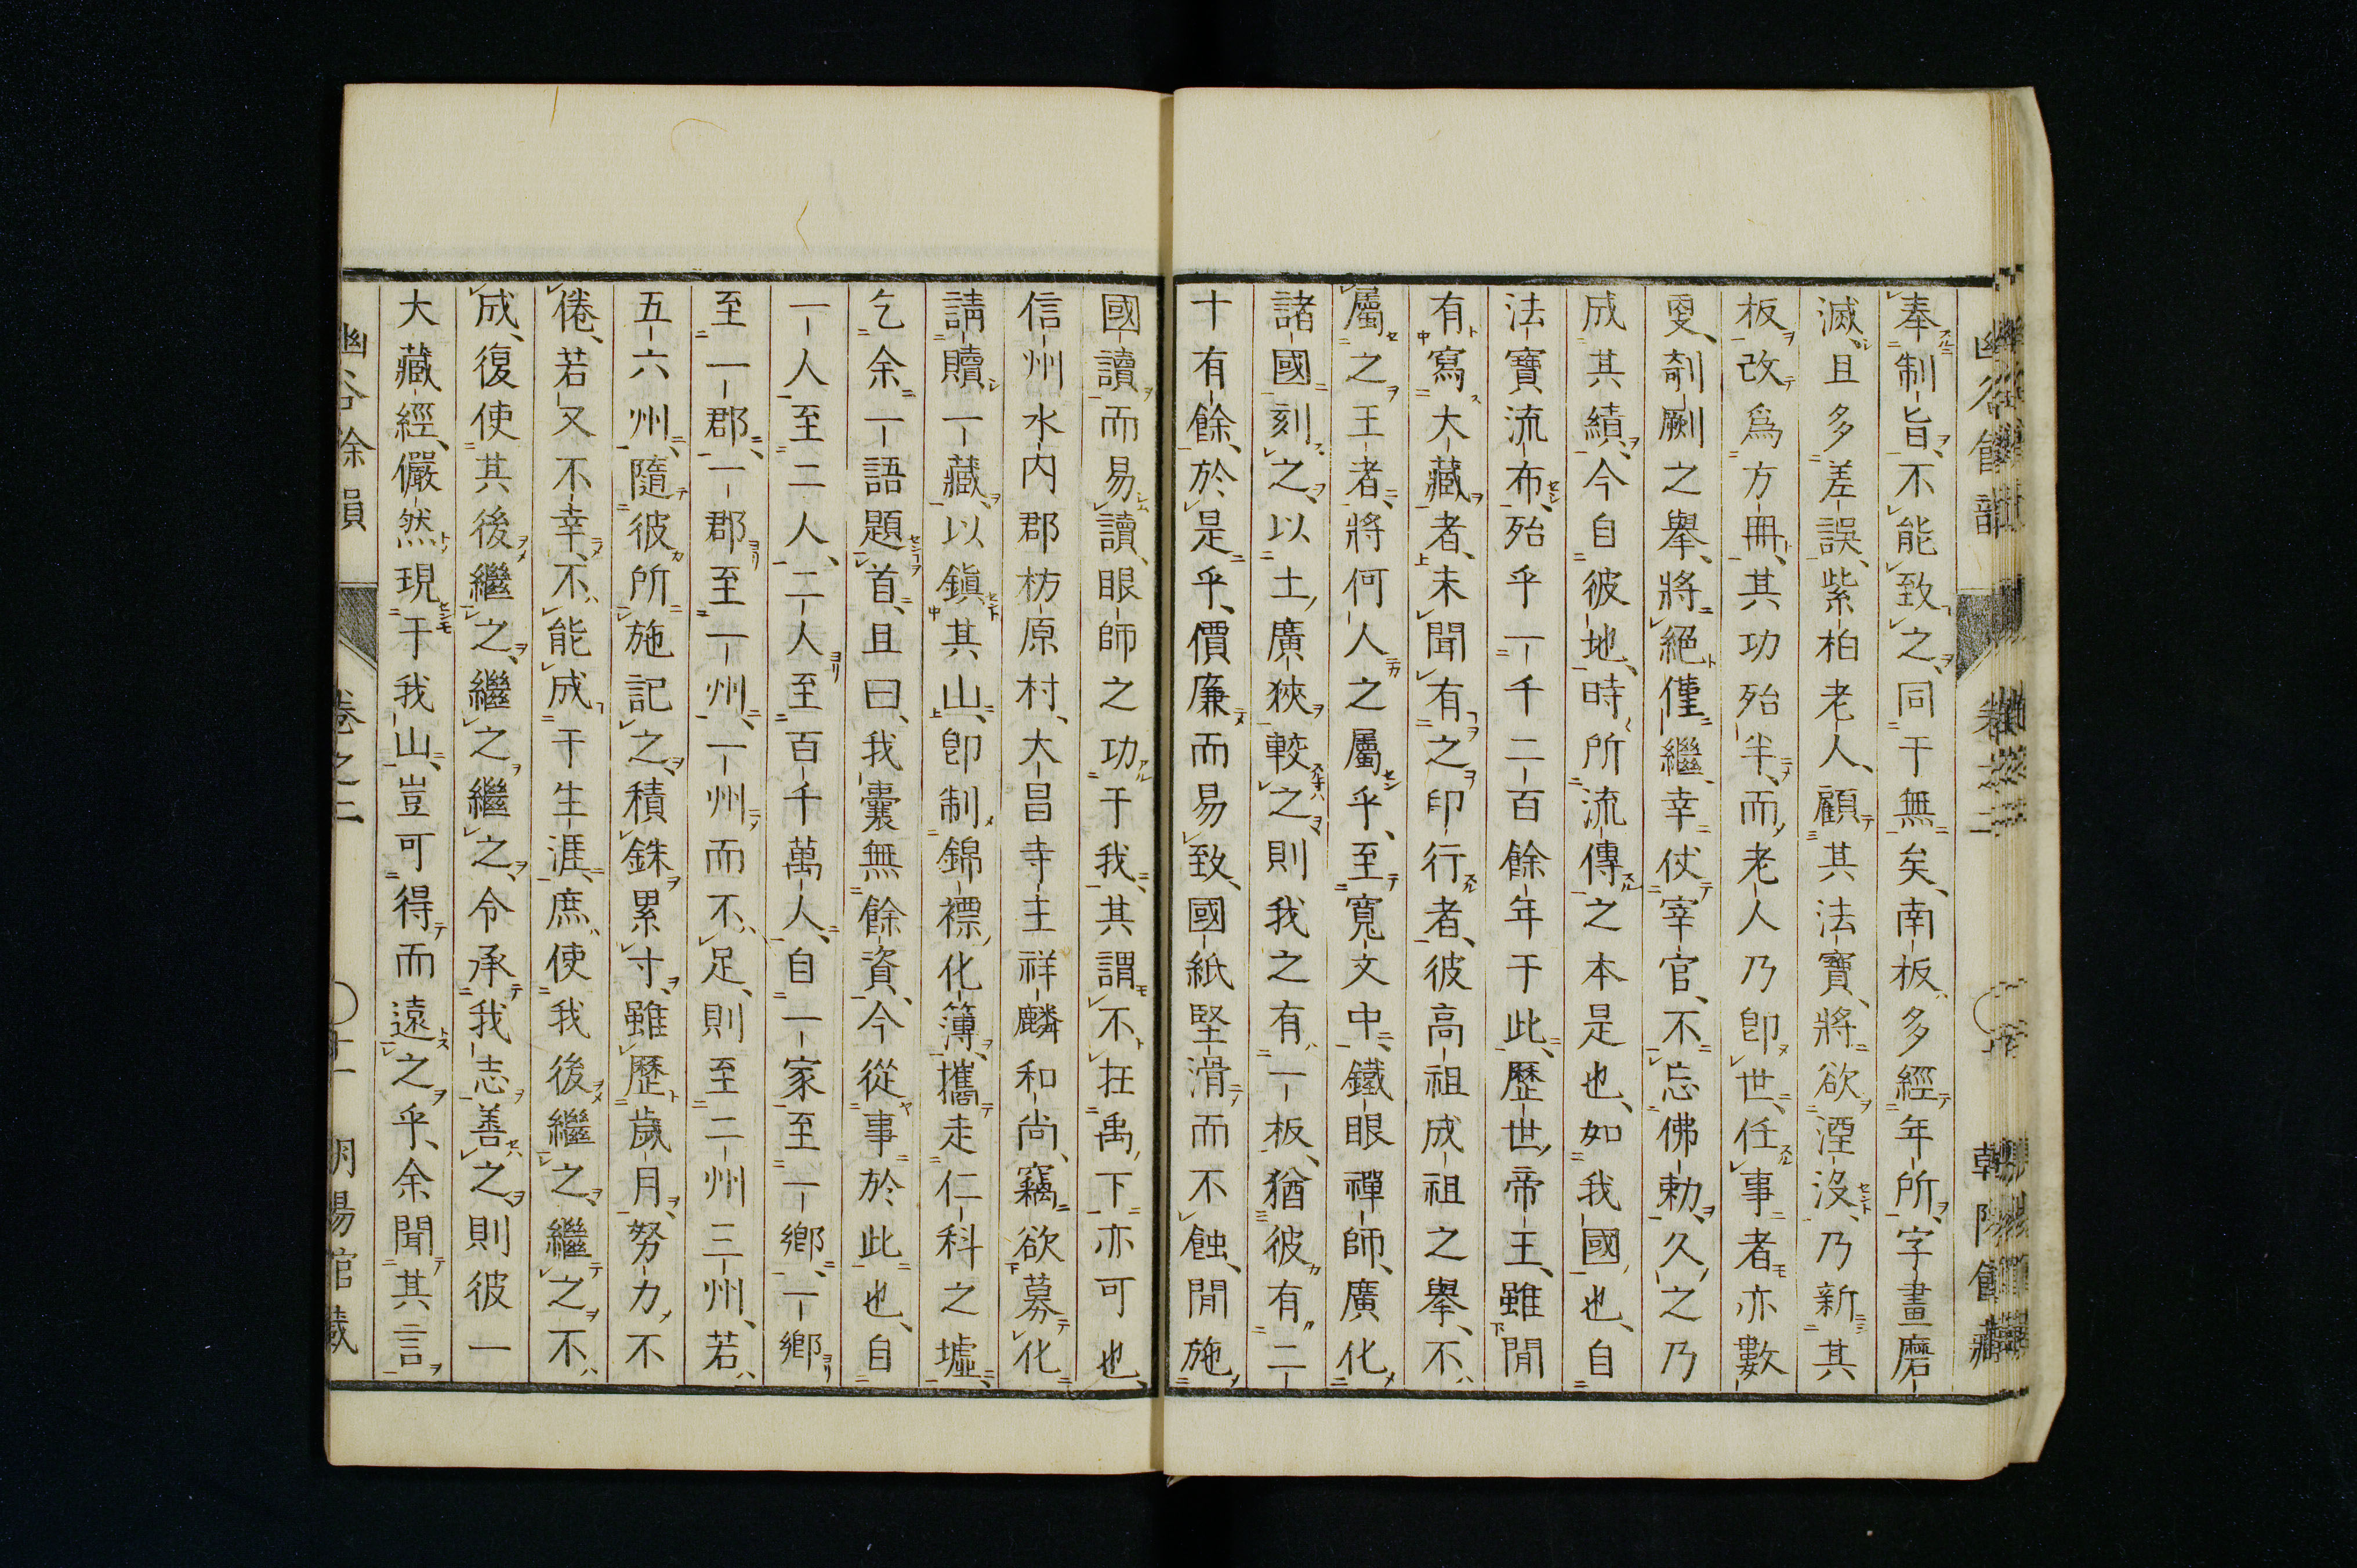 奉制旨、不能致之、同于無矣、南板多經年所、字畫磨
滅、且多差誤、紫柏老人、顧其法寶、將欲湮沒、乃新其
板、改爲方冊、其功殆半、而老人乃卽世、任事者亦數
更、剞劂之舉、將絕僅繼、幸仗宰官、不忘佛勅、久之乃
成其績、今自彼地、時所流傳之本是也、如我國也、自
法寶流布、殆乎一千二百餘年于此、歷世帝王、雖間
有寫大藏者、未聞有之印行者、彼高祖成祖之舉、不
屬之王者、將何人之屬乎、至寬文中、鐵眼禪師、廣化
諸國刻之、以土廣狹較之、則我之有一板、猶彼有二
十有餘、於是乎、價廉而易致、國紙堅滑而不蝕、間施
國讀而易讀、眼師之功于我、其謂不在禹下亦可也、
信州水内郡枋原村、大昌寺主祥麟和尚、竊欲募化
請贖一藏、以鎭其山、卽制錦褾化簿、攜走仁科之墟、
乞余一語題首、且曰、我囊無餘資、今從事於此也、自
一人至二人、二人至百千萬人、自一家至一鄉、一鄉
至一郡、一郡至一州、一州而不足、則至二州三州、若
五六州、隨彼所施記之、積銖累寸、雖歷歲月、努力不
倦、若又不幸、不能成于生涯、庶使我後繼之、繼之不
成、復使其後繼之、繼之繼之、令承我志善之、則彼一
大藏經、儼然現于我山、豈可得而遠之乎、余聞其言
幽谷餘韻 卷之二 朝陽館藏